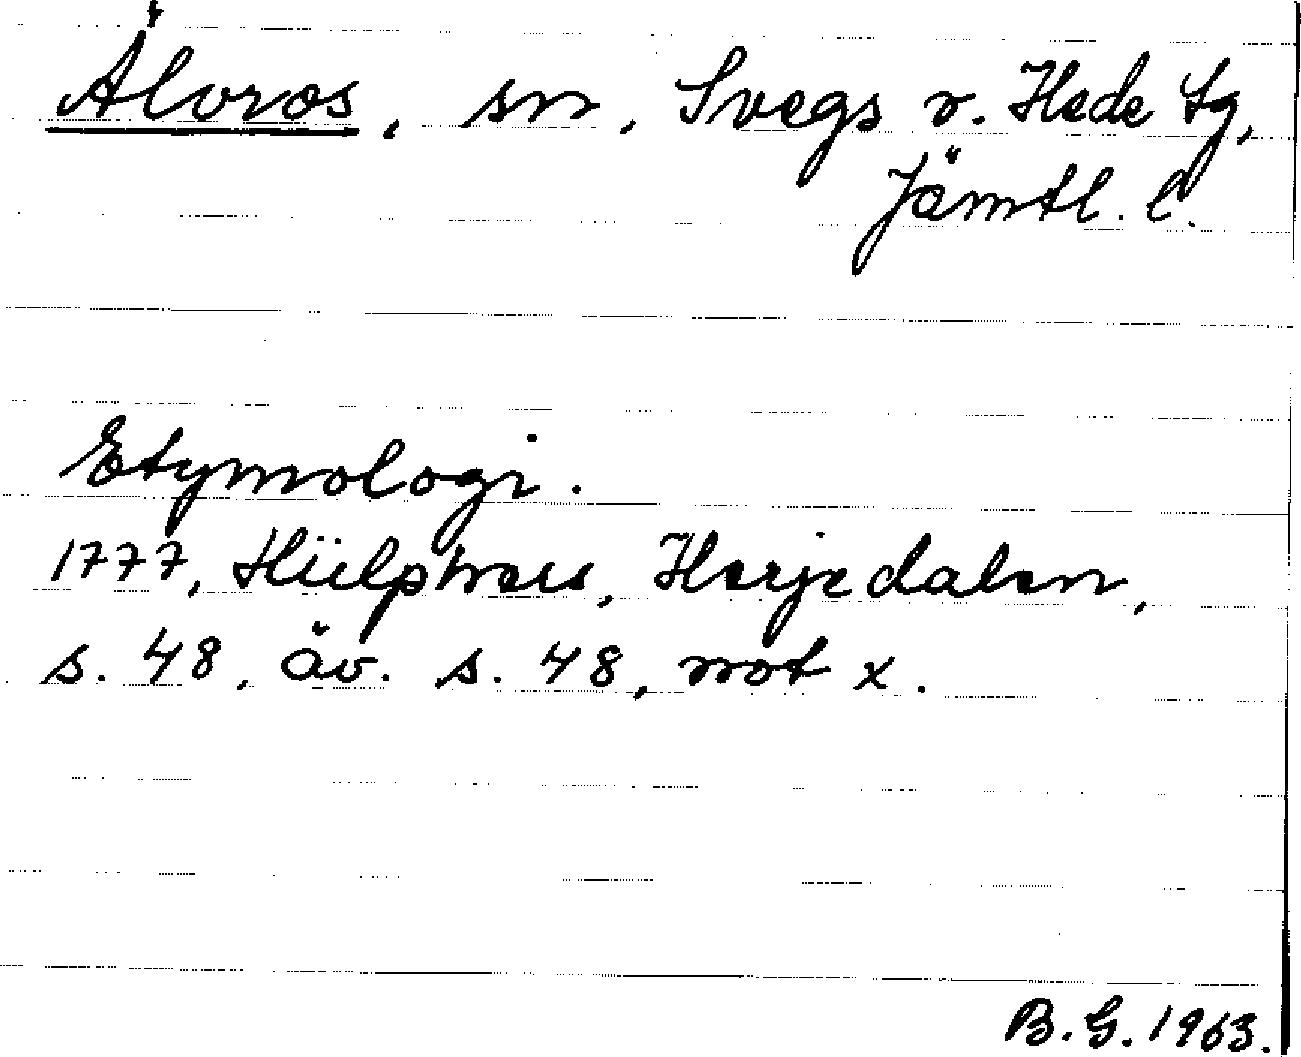 Älvros, sn, Svegs o. Hede tg,
Jämtl. l.
Etymologi.
1777, Hülphers, Herjedalen,
s. 48, äv. s. 48, not x.
B.G. 1963.